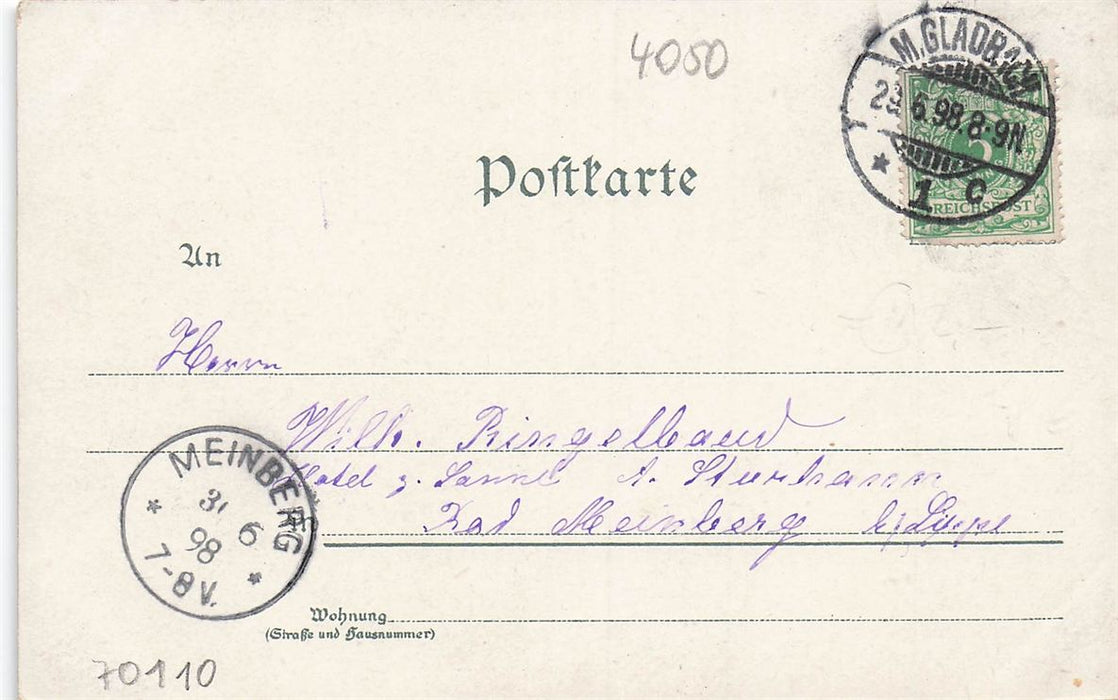 4050
M. GLADBACH
29.6.98.8-9N
1 C
5
REICHSPOST
Poſtkarte
An
Herrn
Wilh. Ringelband
Hotel z. A. Sturhann
Bad Meinberg b/ Lippe
MEINBERG
6
98
7-8 V.
Wohnung
(Straße und Hausnummer)
70110